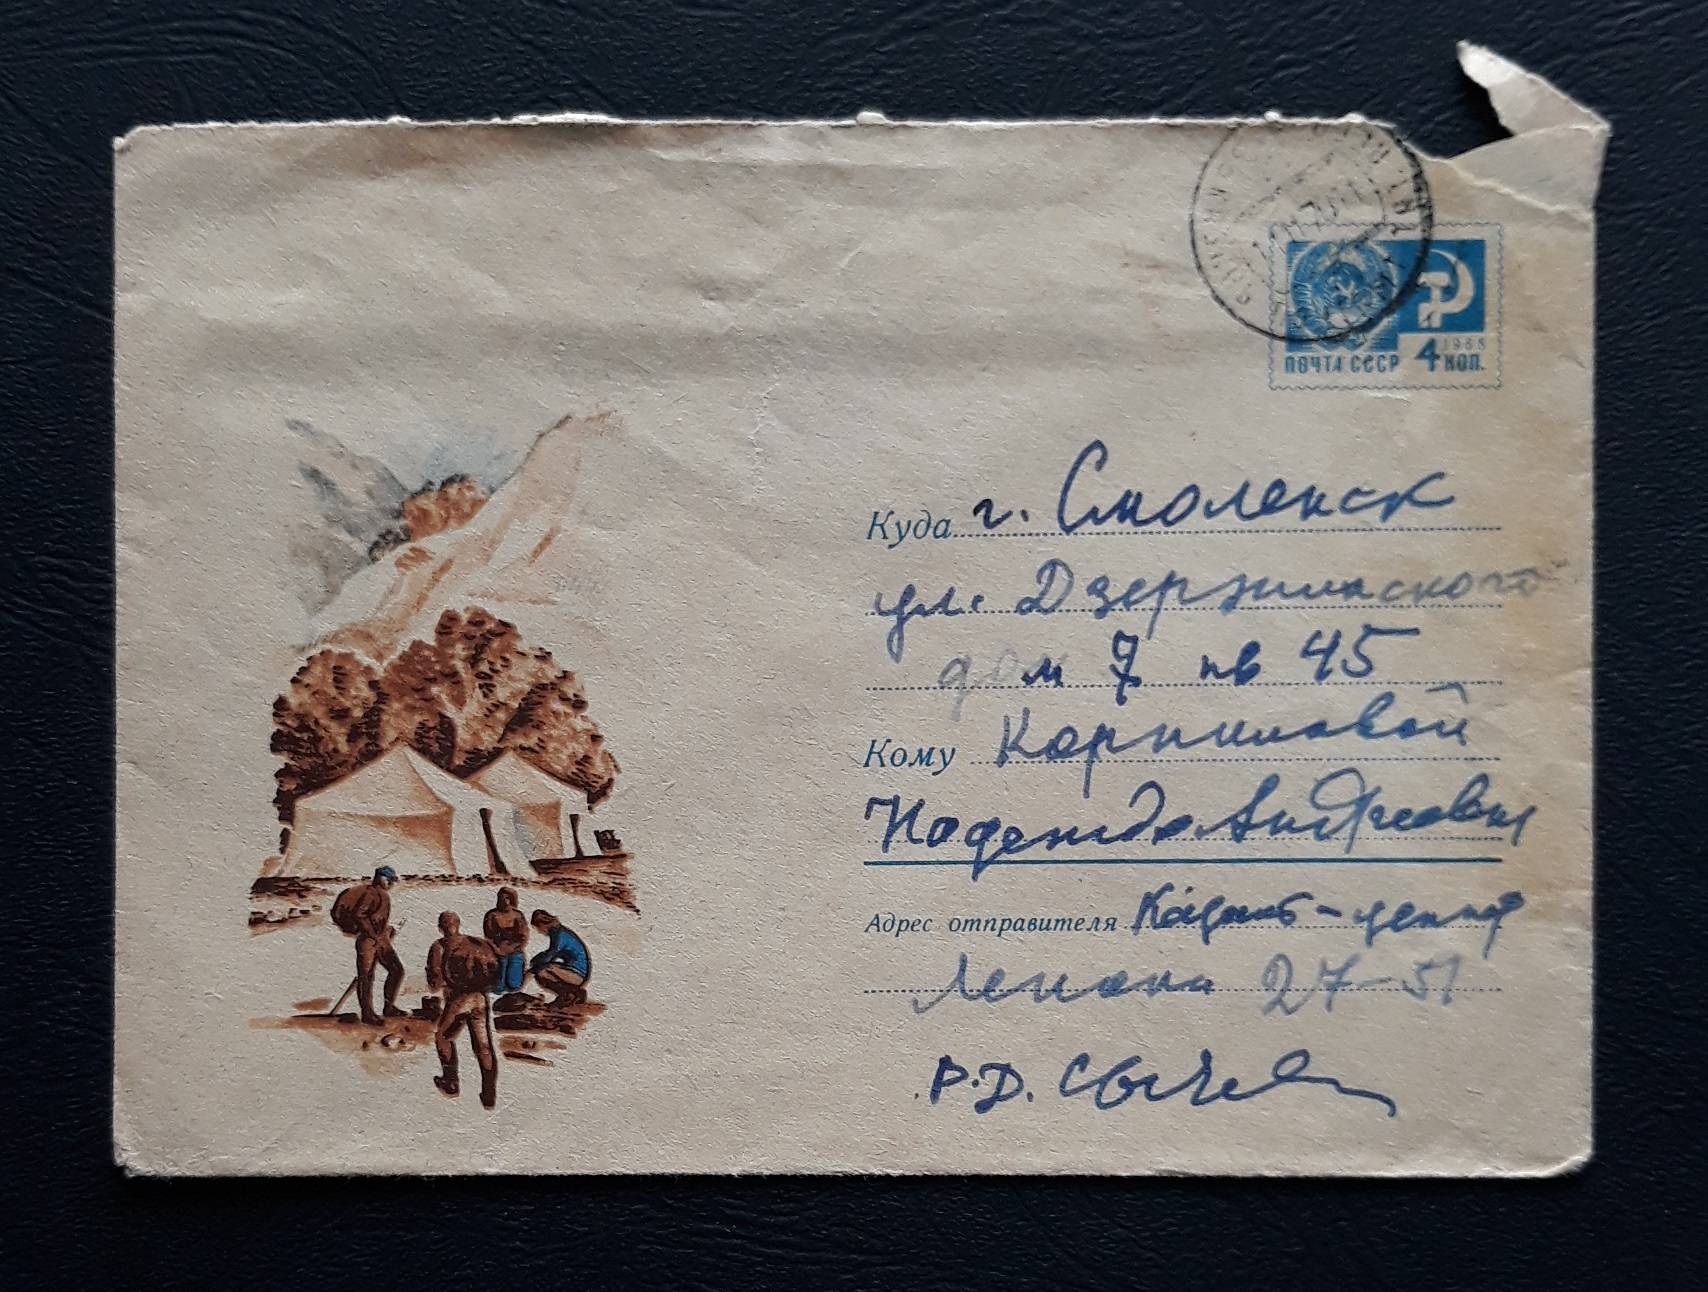 ПОЧТА СССР 4 КОП.
1966
Куда г. Смоленск
ул. Дзержинского
дом 7 кв 45
Кому Корниловой
Надежде Андреевны
Адрес отправителя Казань-центр
Ленина 27-51
Р.Д. Сычев